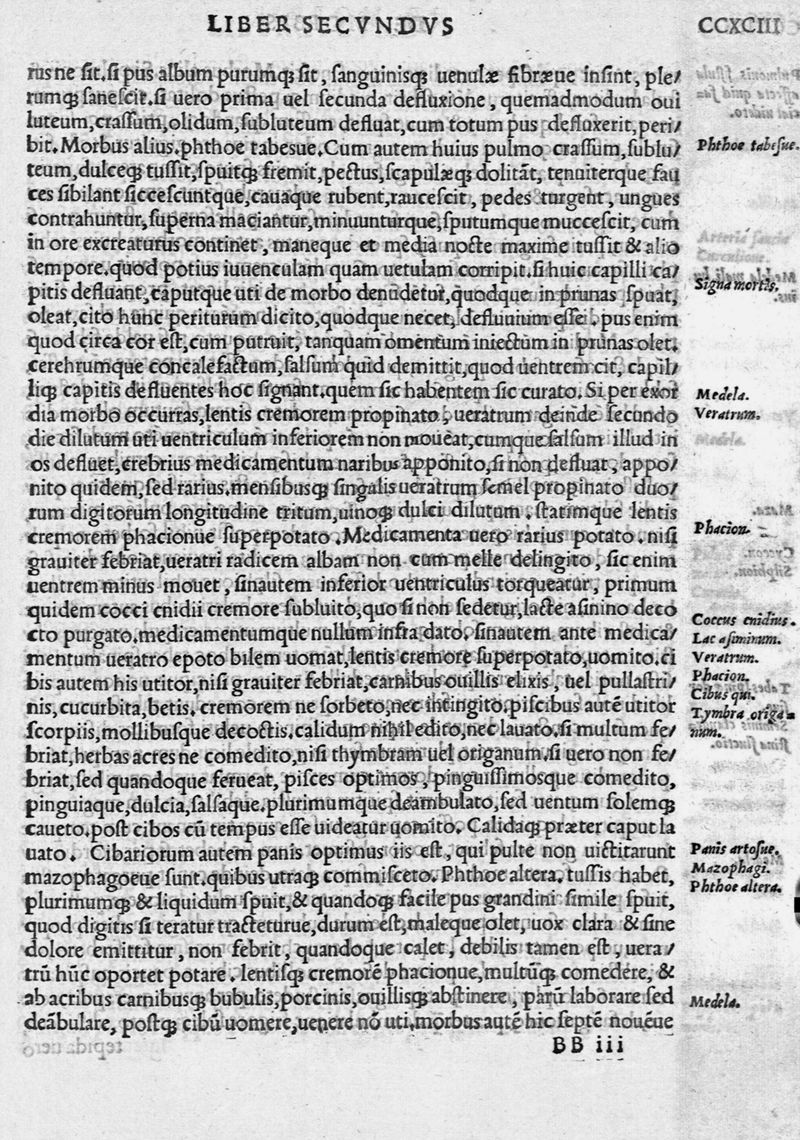 LIBER SECVNDVS
CCXCIII
rus ne sit. si pus album purumq́; sit, sanguinisq́; uenulæ fibræue insint, ple/
rumq́; sanescit. si uero prima uel secunda defluxione, quemadmodum oui
luteum, crassum, olidum, subluteum defluat, cum totum pus defluxerit, peri/
bit. Morbus alius. phthoe tabesue. Cum autem huius pulmo crassum, sublu/
teum, dulceq́; tussit, spuitq́; fremit, pectus, scapulæq́; dolitãt, tenuiterque fau
ces sibilant siccescuntque, cauaque rubent, raucescit, pedes turgent, ungues
contrahuntur, superna maciantur, minuunturque, sputumque muccescit, cum
in ore excreaturus continet, maneque et media nocte maxime tussit & alio
tempore. quod potius iuuenculam quam uetulam corripit. si huic capilli ca/
pitis defluant, caputque uti de morbo denudetur, quodque in prunas spuat,
oleat, cito hunc periturum dicito, quodque necet, defluuium esse. pus enim
quod circa cor est, cum putruit, tanquam omentum iniectum in prunas olet.
cerehrumque concalefactum, salsum quid demittit, quod uentrem cit, capil/
liq́; capitis defluentes hoc signant. quem sic habentem sic curato. Si per exor
dia morbo occurras, lentis cremorem propinato, ueratrum deinde secundo
die dilutum uti uentriculum inferiorem non moueat, cumque salsum illud in
os defluet, crebrius medicamentum naribus apponito, si non defluat, appo/
nito quidem, sed rarius. mensibusq́; singulis ueratrum semel propinato duo/
rum digitorum longitudine tritum, uinoq́; dulci dilutum, statimque lentis
cremorem phacionue superpotato. Medicamenta uero rarius potato. nisi
grauiter febriat, ueratri radicem albam non cum melle delingito, sic enim
uentrem minus mouet, sinautem inferior uentriculus torqueatur, primum
quidem cocci cnidii cremore subluito, quo si non sedetur, lacte asinino deco
cto purgato. medicamentumque nullum infra dato. sinautem ante medica/
mentum ueratro epoto bilem uomat, lentis cremore superpotato, uomito. ci
bis autem his utitor, nisi grauiter febriat, carnibus ouillis elixis, uel pullastri/
nis, cucurbita, betis. cremorem ne sorbeto, nec intingito, piscibus autẽ utitor
scorpiis, mollibusque decoctis. calidum nihil edito, nec lauato. si multum fe/
briat, herbas acres ne comedito, nisi thymbram uel origanum. si uero non fe/
briat, sed quandoque ferueat, pisces optimos, pinguissimosque comedito,
pinguiaque, dulcia, salsaque. plurimumque deambulato, sed uentum solemq́;
caueto. post cibos cũ tempus esse uideatur uomito. Calidaq́; præter caput la
uato. Cibariorum autem panis optimus iis est, qui pulte non uictitarunt
mazophagoeue sunt. quibus utraq́; commisceto. Phthoe altera, tussis habet,
plurimumq́; & liquidum spuit, & quandoq́; facile pus grandini simile spuit,
quod digitis si teratur tracteturue, durum est, maleque olet, uox clara & sine
dolore emittitur, non febrit, quandoque calet, debilis tamen est, uera/
trũ hũc oportet potare. lentisq́; cremorẽ phacionue, multũq́; comedere, &
ab acribus carnibusq́; bubulis, porcinis, ouillisq́; abstinere, parũ laborare sed
deãbulare, postq́; cibũ uomere, uenere nõ uti. morbus autẽ hic septẽ nouẽue
BB iii
Phthoe tabesue.
Signa mortis.
Medela.
Veratrum.
Phacion.
Coccus cnidius.
Lac asininum.
Veratrum.
Phacion.
Cibus qui.
Tymbra origa=
num.
Panis artosue.
Mazophagi.
Phthoe altera.
Medela.